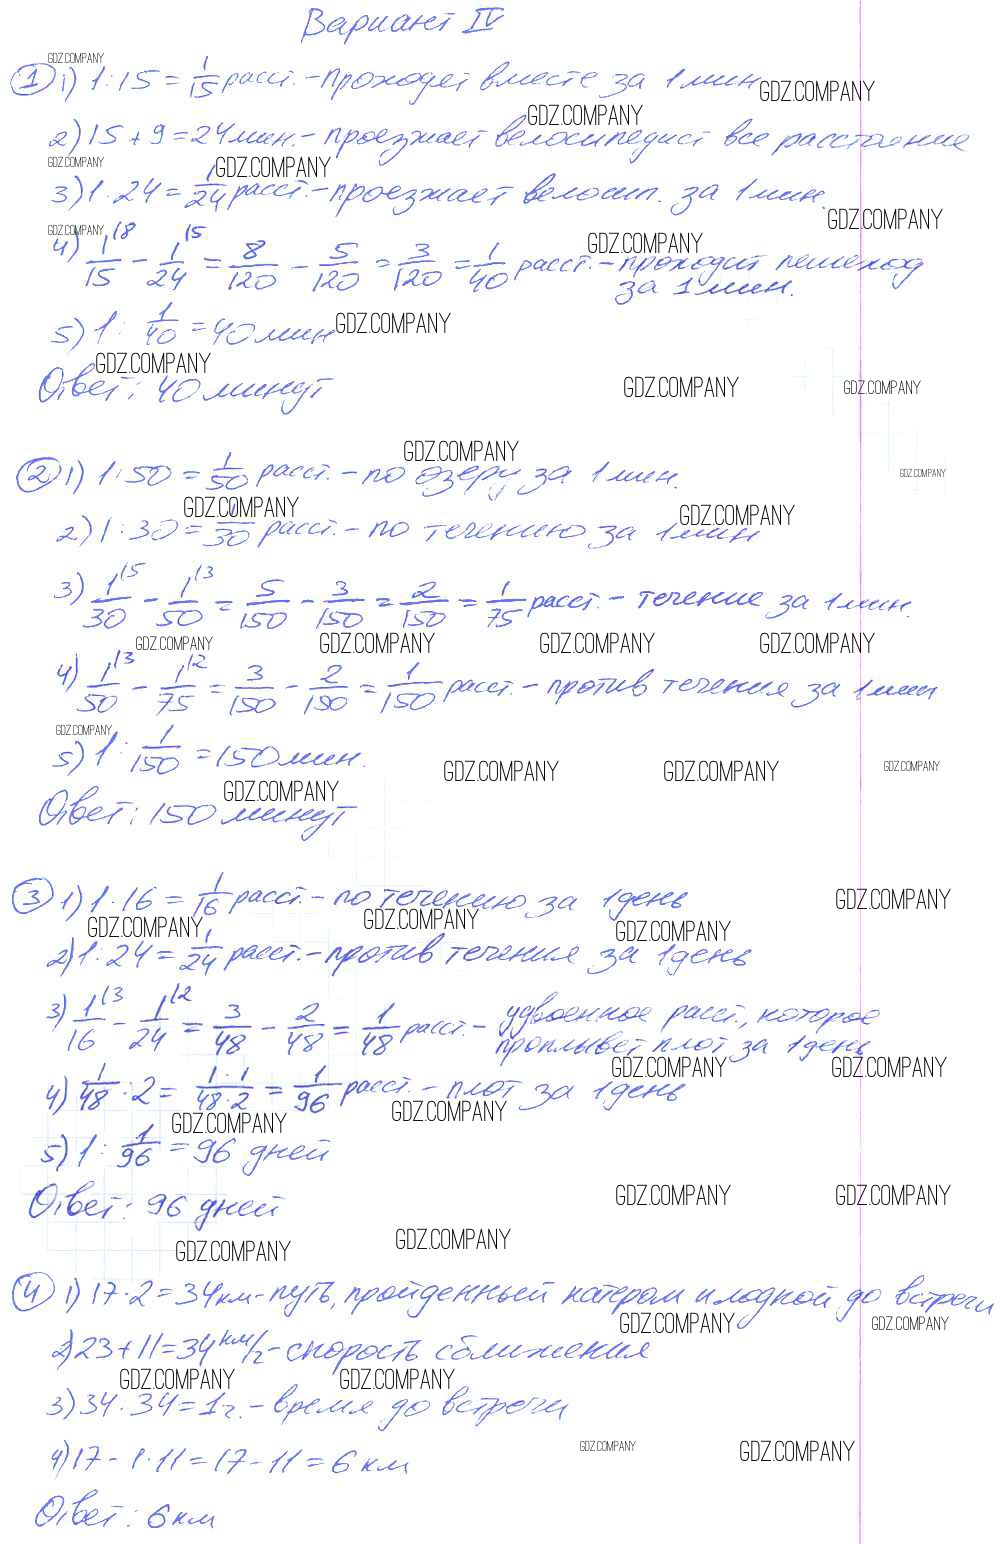 Вариант IV
GDZ.COMPANY
① 1) 1:15 = 1/15 расст. - проходят вместе за 1 мин
GDZ.COMPANY
GDZ.COMPANY
2) 15 + 9 = 24 мин. - проезжает велосипедист все расстояние
GDZ.COMPANY GDZ.COMPANY
3) 1:24 = 1/24 расст. - проезжает велосип. за 1 мин.
GDZ.COMPANY
GDZ.COMPANY GDZ.COMPANY
4) 1/15 |8 - 1/24 |5 = 8/120 - 5/120 = 3/120 = 1/40 расст. - проходит пешеход
за 1 мин.
5) 1 : 1/40 = 40 мин GDZ.COMPANY
GDZ.COMPANY
Ответ: 40 минут GDZ.COMPANY GDZ.COMPANY
GDZ.COMPANY
② 1) 1:50 = 1/50 расст. - по озеру за 1 мин. GDZ.COMPANY
GDZ.COMPANY GDZ.COMPANY
2) 1:30 = 1/30 расст. - по течению за 1 мин
3) 1/30 |5 - 1/50 |3 = 5/150 - 3/150 = 2/150 = 1/75 расст. - течение за 1 мин.
GDZ.COMPANY GDZ.COMPANY GDZ.COMPANY GDZ.COMPANY
4) 1/50 |3 - 1/75 |2 = 3/150 - 2/150 = 1/150 расст. - против течения за 1 мин
GDZ.COMPANY
5) 1 : 1/150 = 150 мин.
GDZ.COMPANY GDZ.COMPANY GDZ.COMPANY
GDZ.COMPANY
Ответ: 150 минут
③ 1) 1:16 = 1/16 расст. - по течению за 1 день GDZ.COMPANY
GDZ.COMPANY GDZ.COMPANY GDZ.COMPANY
2) 1:24 = 1/24 расст. - против течения за 1 день
3) 1/16 |3 - 1/24 |2 = 3/48 - 2/48 = 1/48 расст. - удвоенное расст., которое
проплывет плот за 1 день
GDZ.COMPANY GDZ.COMPANY
4) 1/48 : 2 = 1·1/48·2 = 1/96 расст. - плот за 1 день
GDZ.COMPANY GDZ.COMPANY
5) 1 : 1/96 = 96 дней
Ответ: 96 дней GDZ.COMPANY GDZ.COMPANY
GDZ.COMPANY GDZ.COMPANY
④ 1) 17·2 = 34 км - путь, пройденный катером и лодкой до встречи
GDZ.COMPANY GDZ.COMPANY
2) 23 + 11 = 34 км/ч - скорость сближения
GDZ.COMPANY GDZ.COMPANY
3) 34:34 = 1 ч. - время до встречи
GDZ.COMPANY GDZ.COMPANY
4) 17 - 1·11 = 17 - 11 = 6 км
Ответ: 6 км